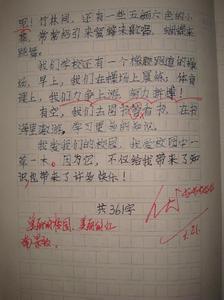 吧！竹林间，还有一些五颜六色的小
花，常常招引来蜜蜂来歌唱，蝴蝶来
跳舞。
我们学校还有一个橡胶跑道的操
场，早上，我们在操场上晨练，体育
课上，我们力争上游，努力拼搏！
有空，我们去图书馆看书，在书
海里遨游，学习更多的知识。
我爱我们的校园，我爱校园中一
草一木。因为它，不仅给我带来了知
识也带来了许多快乐！
共361字
美丽的校园，美丽的
1.21.